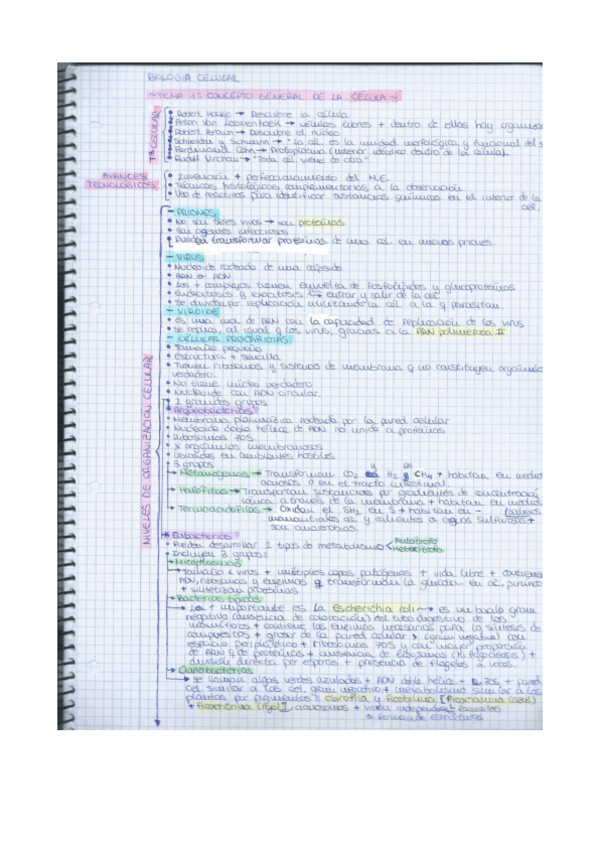 BIOLOGÍA CELULAR
~ TEMA 1: CONCEPTO GENERAL DE LA CÉLULA ~
Tª CELULAR
• Robert Hooke → Descubre la célula
• Anton Van Leeuwenhoek → células libres + dentro de ellas hay organiza
• Robert Brown → Descubre el núcleo
• Schleiden y Schwann → "La cél. es la unidad morfológica y funcional del s
• Ferdinand Cohn → Protoplasma (interior idéntico dentro de las células).
• Rudolf Virchow → "Toda cél. viene de otra"
AVANCES TECNOLÓGICOS
• Invención + perfeccionamiento del M.E.
• Técnicas histológicas complementarias a la observación
• Uso de reactivos para identificar sustancias químicas en el interior de la
cél.
NIVELES DE ORGANIZACIÓN CELULAR
- PRIONES
• No son seres vivos → son proteínas
• Son agentes infecciosos
• Pueden transformar proteínas de una cél. en nuevos priones.
- VIRUS
• Nucleoide rodeado de una cápside
• ARN o ADN
• Los + complejos tienen envuelta de fosfolípidos y glucoproteínas
• Endocitosis y exocitosis entrar y salir de la cél.
• Se divide por replicación utilizando la cél. a la q parasitan
- VIROIDE
• Es una de ARN con la capacidad de replicación de los virus
• Se replica, al igual q los virus, gracias a la ARN polimerasa II
- CÉLULAS PROCARIOTAS
• Tamaño pequeño
• Estructura + sencilla
• Tienen ribosomas y sistemas de membrana q no constituyen orgánulo
verdadero.
• No tiene núcleo verdadero
• Nucleoide con ADN circular.
• 2 grandes grupos
• Arqueobacterias
• Membrana plasmática rodeada por la pared celular
• Nucleoide doble hélice de ADN no unido a proteínas
• Ribosomas 70S
• x orgánulos membranosos
• Ubicadas en ambientes hostiles
• 3 grupos
→ Metanógenas → Transforman CO2 e H2 CH4 + habitan en medios
acuosos o en el tracto intestinal
→ Halófitas → Transportan sustancias por gradientes de concentración
iónica a través de la membrana + habitan en medios
→ Termoacidófilas → Oxidan el SH2 en S + habitan en - salinos
manantiales ac. y calientes o aguas sulfurosas +
son anaerobias.
• Eubacterias
• Pueden desarrollar 2 tipos de metabolismo Autótrofo
Heterótrofo
• Incluyen 3 grupos:
→ Micoplasmas
→ Tamaño ≤ virus + múltiples copias patógenas + vida libre + contienen
ADN, ribosomas y enzimas q transforman la glucosa en ác. pirúvico
+ sintetizan proteínas
→ Bacterias típicas
→ La + importante es la Escherichia coli → es un bacilo gram
negativo (ausencia de coloración) del tubo digestivo de los
mamíferos + contiene las enzimas necesarias para la síntesis de
compuestos + grosor de la pared celular (gram negativa) con
espacio periplásmico + ribosomas 70S q con mayor proporción
de ARN q de proteínas + ausencia de
división directa por esporas + presencia de flagelos a veces.
→ Cianobacterias
→ Se llaman algas verdes azuladas + ADN doble hélice + R. 70S + pared
cel. similar a las cél. gram negativo + metabolismo similar a las
plantas por pigmentos: clorofila y ficobilina [Ficocianina (azul)
+ Ficoeritrina (roja)] + viven independient
o forman de